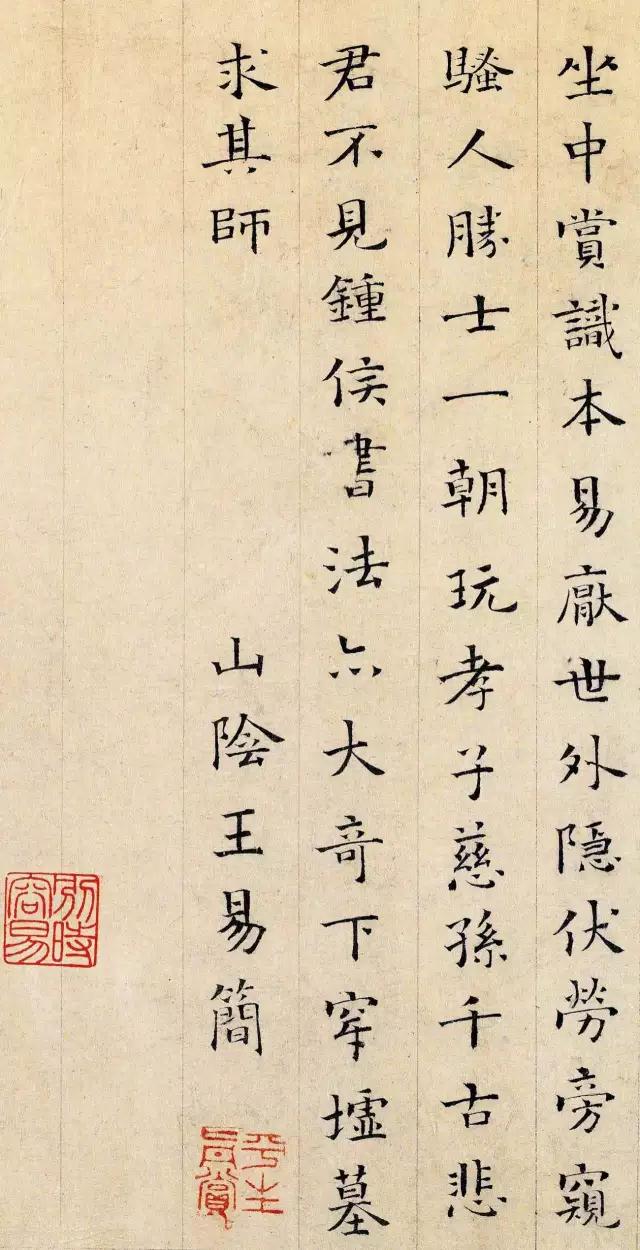 坐中賞識本易厭世外隱伏勞旁窺
騷人勝士一朝玩孝子慈孫千古悲
君不見鍾侯書法亦大奇下穿墟墓
求其師
山陰王易簡
平生
真賞
別時
容易